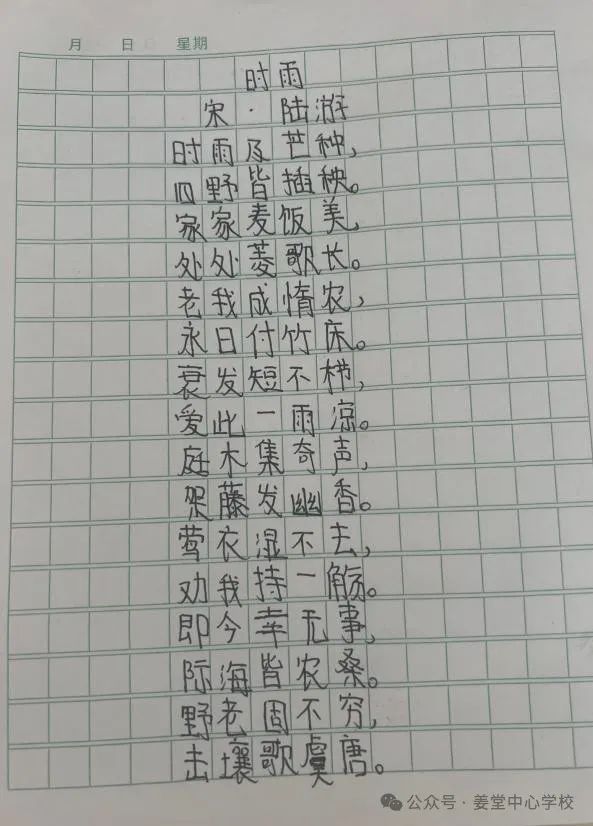 月 日 星期
时雨
宋·陆游
时雨及芒种,
四野皆插秧。
家家麦饭美,
处处菱歌长。
老我成惰农,
永日付竹床。
衰发短不栉,
爱此一雨凉。
庭木集奇声,
架藤发幽香。
莺衣湿不去,
劝我持一觞。
即今幸无事,
际海皆农桑。
野老固不穷,
击壤歌虞唐。
公众号·姜堂中心学校